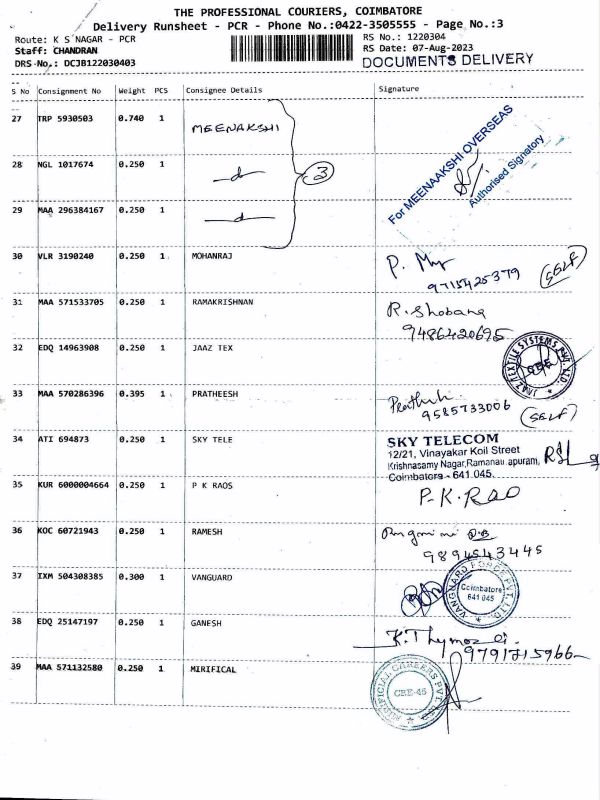 THE PROFESSIONAL COURIERS, COIMBATORE
Delivery Runsheet - PCR - Phone No.:0422-3505555 - Page No.:3
Route: K S NAGAR - PCR
Staff: CHANDRAN
DRS No.: DCJB122030403
RS No.: 1220304
RS Date: 07-Aug-2023
DOCUMENTS DELIVERY
S No Consignment No Weight PCS Consignee Details Signature
27 TRP 5930503 0.740 1 MEENAKSHI
28 NGL 1017674 0.250 1
29 MAA 296384167 0.250 1
3
For MEENAAKSHI OVERSEAS
Authorised Signatory
30 VLR 3190240 0.250 1 MOHANRAJ
9715425379 (SELF)
31 MAA 571533705 0.250 1 RAMAKRISHNAN R. Shobana
9486420695
32 EDQ 14963908 0.250 1 JAAZ TEX
JAAZ TEXTILE SYSTEMS PVT. LTD.
CBE
33 MAA 570286396 0.395 1 PRATHEESH
9585733006 (SELF)
34 ATI 694873 0.250 1 SKY TELE SKY TELECOM
12/21, Vinayakar Koil Street
Krishnasamy Nagar, Ramanathapuram,
Coimbatore - 641 045.
35 KUR 6000004664 0.250 1 P K RAOS P.K.RAO
36 KOC 60721943 0.250 1 RAMESH
9894543445
37 IXM 504308385 0.300 1 VANGUARD
VANGUARD FORCE PVT. LTD.
Coimbatore
641 045
38 EDQ 25147197 0.250 1 GANESH
9791215966
39 MAA 571132580 0.250 1 MIRIFICAL
MIRIFICIAL CAREERS PVT. LTD.
CBE-45